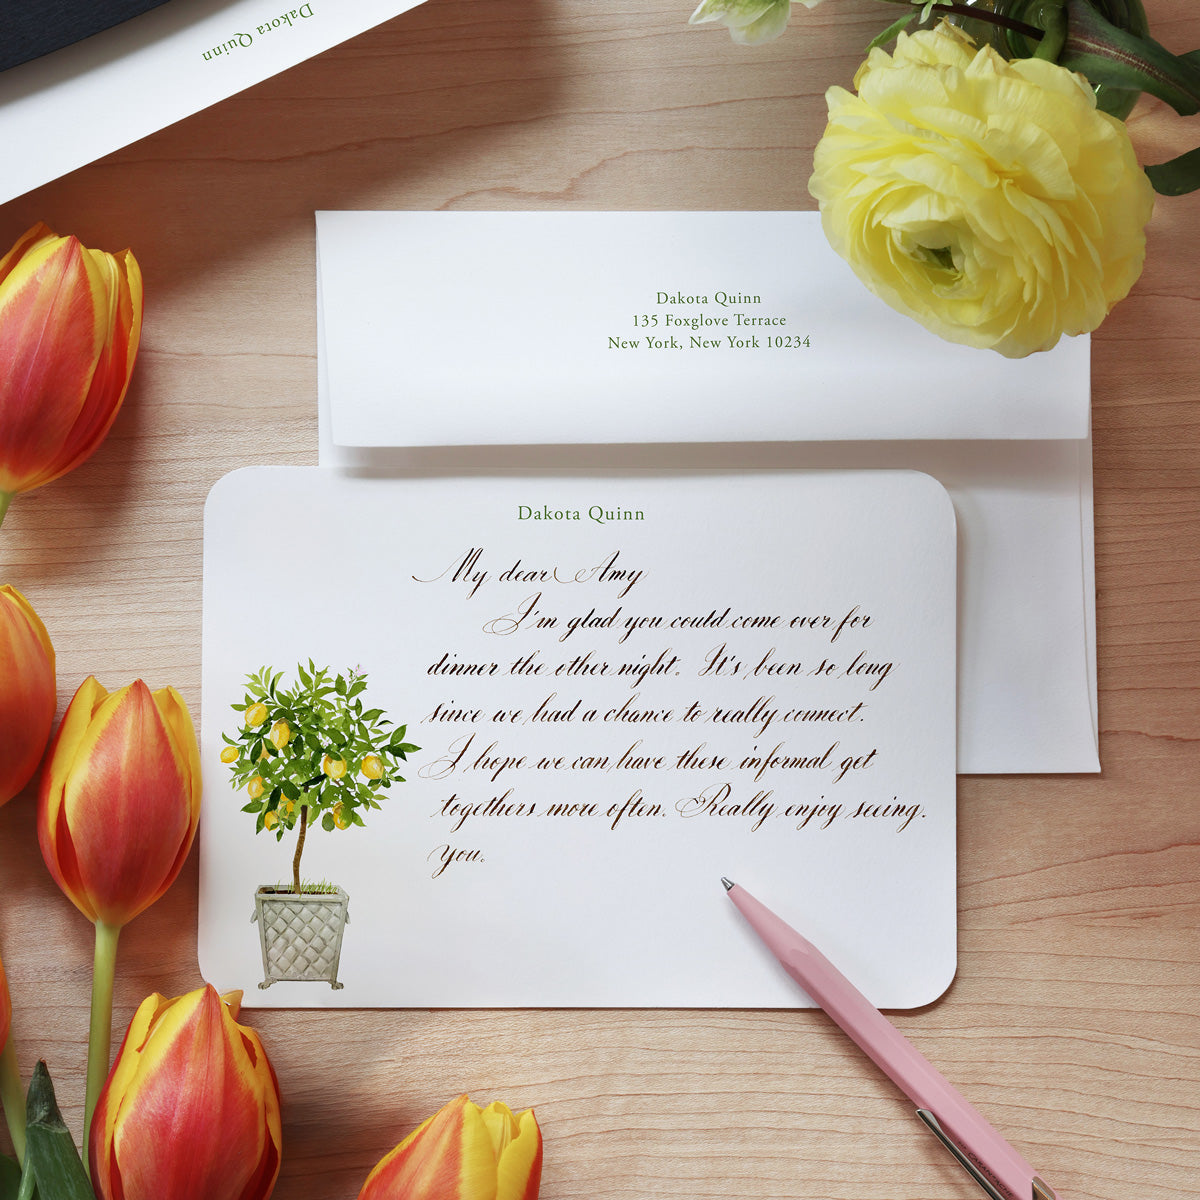 Dakota Quinn
Dakota Quinn
135 Foxglove Terrace
New York, New York 10234
Dakota Quinn
My dear Amy
I'm glad you could come over for
dinner the other night. It's been so long
since we had a chance to really connect.
I hope we can have these informal get
togethers more often. Really enjoy seeing.
you.